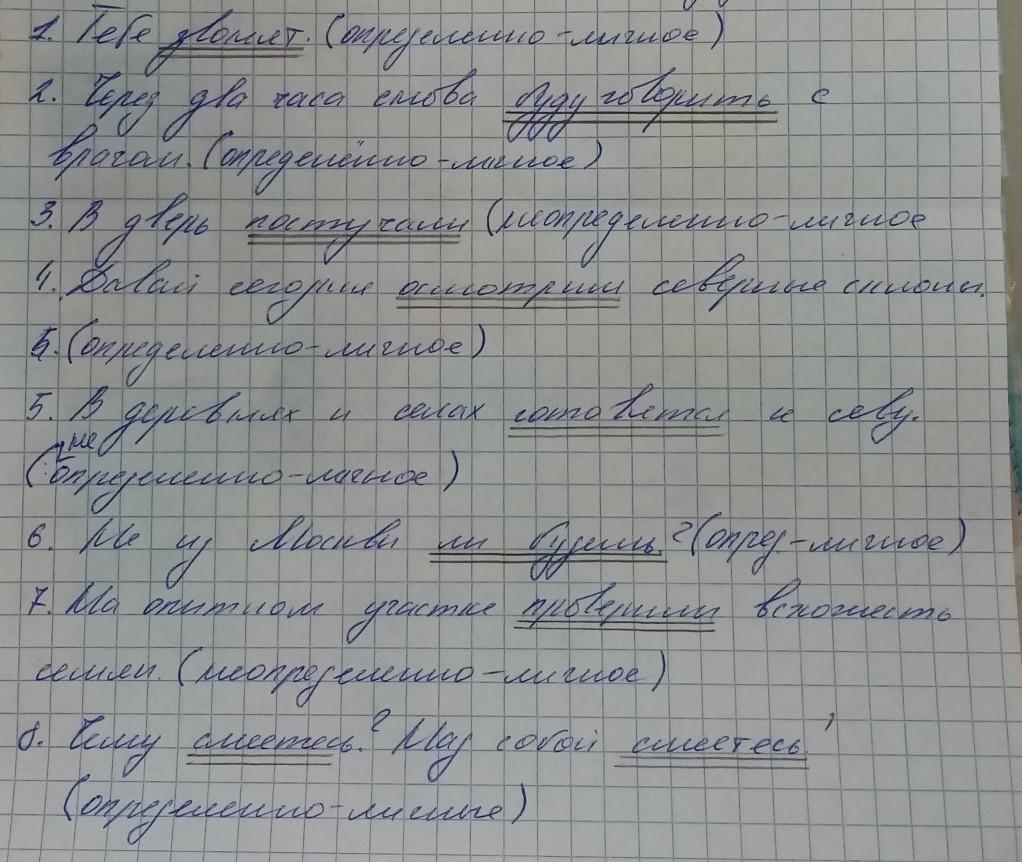 1. Тебе звонят. (определенно-личное)
2. Через два часа снова буду говорить с
врачом. (определённо-личное)
3. В дверь постучали (неопределенно-личное
4. Давай сегодня осмотрим северные склоны.
5. (определенно-личное)
5. В деревнях и селах готовятся к севу.
не
(определенно-личное)
6. Не из Москвы ли будешь? (опред.-личное)
7. На опытном участке проверили всхожесть
семян. (неопределенно-личное)
8. Чему смеетесь? Над собой смеетесь!
(определенно-личные)